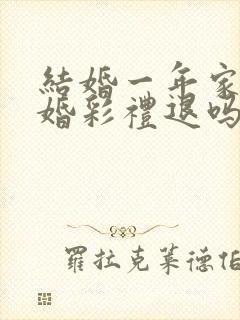 結婚一年家
婚彩禮退吗
羅拉克萊德伯